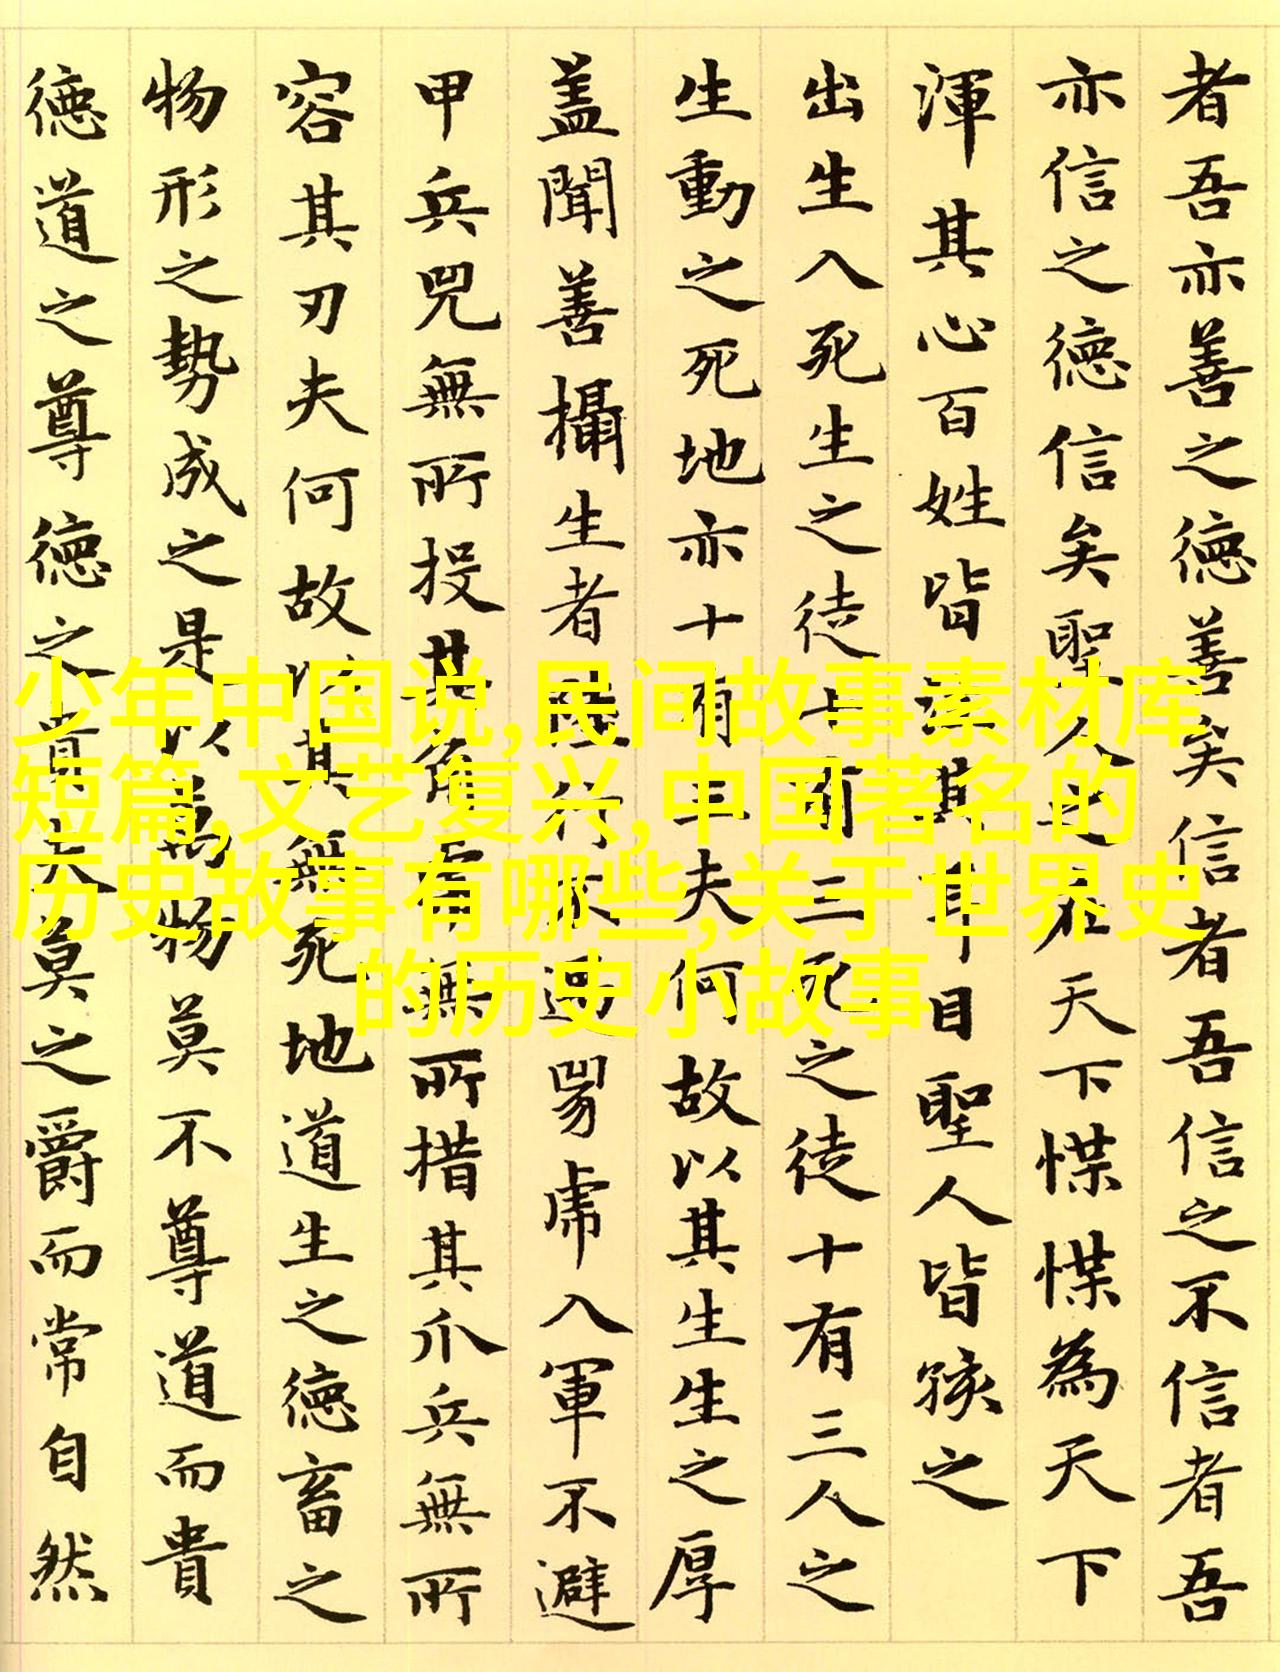 者吾亦善之德善矣信者吾信之不信者吾
亦信之德信矣聖人之在天下惵惵為天下
渾其心百姓皆注其耳目聖人皆孩之
出生入死生之徒十有三死之徒十有三人之
生動之死地亦十有三夫何故以其生生之厚
盖聞善攝生者陸行不遇兕虎入軍不避
甲兵兕無所投其角虎無所措其爪兵無所
容其刃夫何故以其無死地道生之德畜之
物形之勢成之是以萬物莫不尊道而貴
德道之尊德之貴夫莫之爵而常自然
少年中国说,民间故事素材库
短篇,文艺复兴,中国著名的
历史故事有哪些,关于世界史
的历史小故事